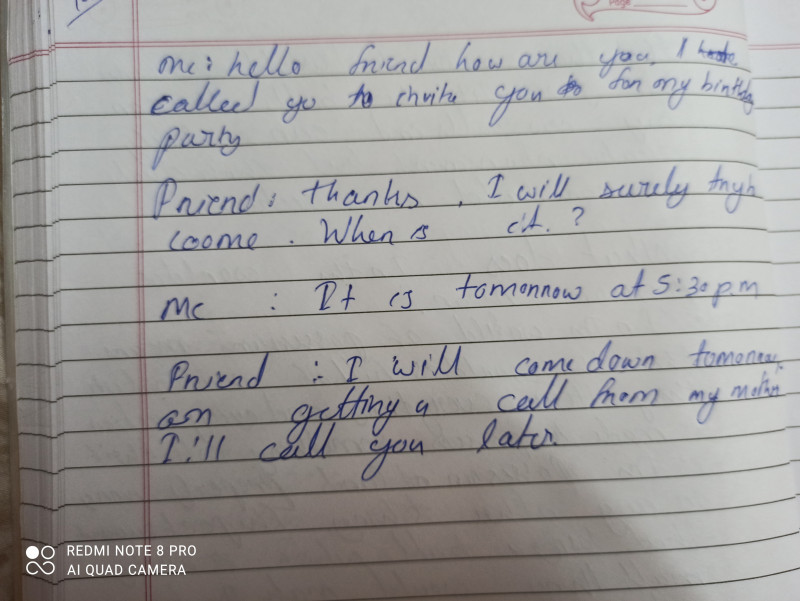 me: hello friend how are you. I
called yo to invite you for my birthday
party
Friend: thanks. I will surely try
coome. When is it.?
Me : It is tomorrow at 5:30 p.m
Friend : I will come down tomorrow.
am getting a call from my mother
I'll call you later
REDMI NOTE 8 PRO
AI QUAD CAMERA